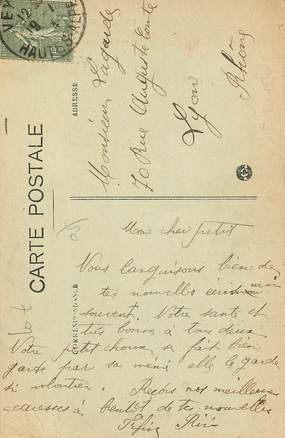 VEY
12
19
HAUTE
CARTE POSTALE
ADRESSE
Monsieur Lagarde
70 Rue Auguste Comte
Lyon
Rhône
CORRESPONDANCE
Mon cher petit
Nous languissons bien de
tes nouvelles
souvent. Notre santé est
très bonne à tous deux
Votre petit choux, a fait bien
garde par sa mémé elle le garde
si volontier. Reçois nos meilleures
caresses a bientôt de tes nouvelles